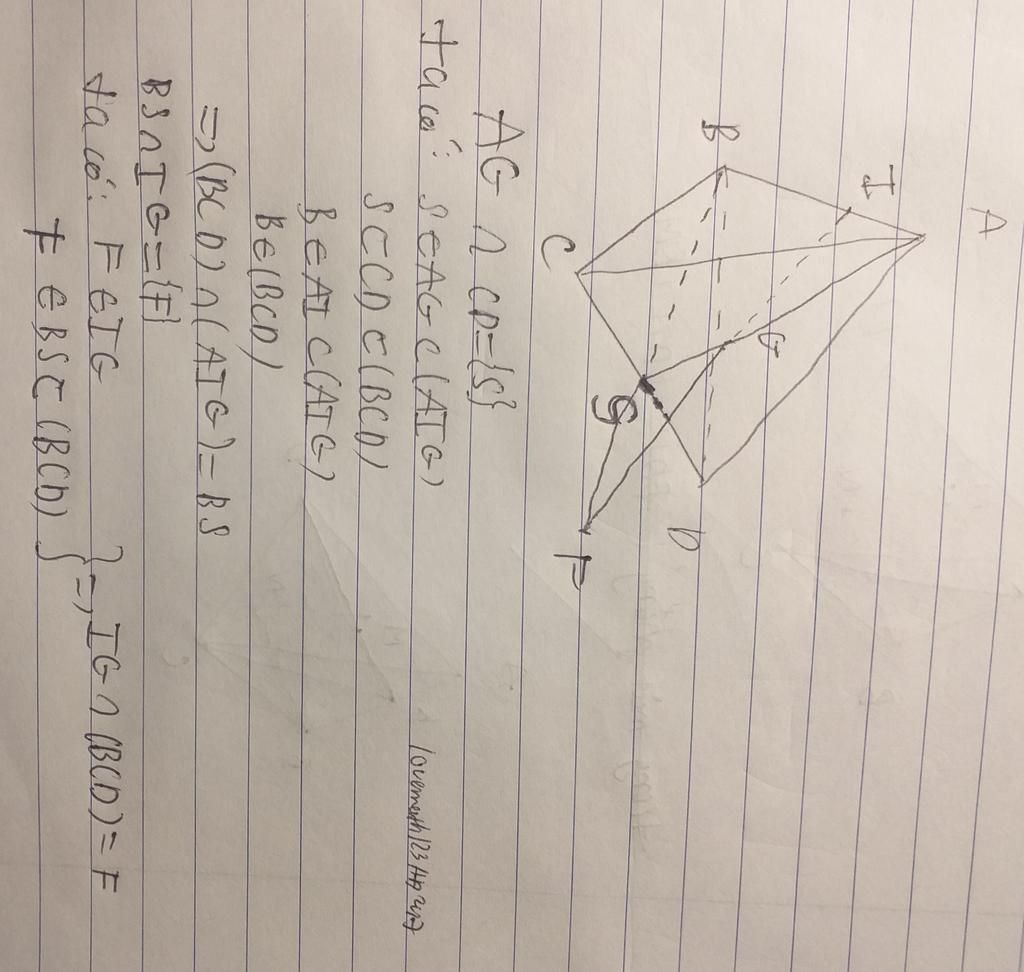 A
I
B
G
D
C
S
F
AG ∩ CD={S}
ta có: S∈AG⊂(AIG)
S⊂CD⊂(BCD)
B∈AI⊂(AIG)
B∈(BCD)
=>(BCD)∩(AIG)=BS
BS∩IG={F}
ta có: F∈IG
F∈BS⊂(BCD) } =>IG∩(BCD)=F